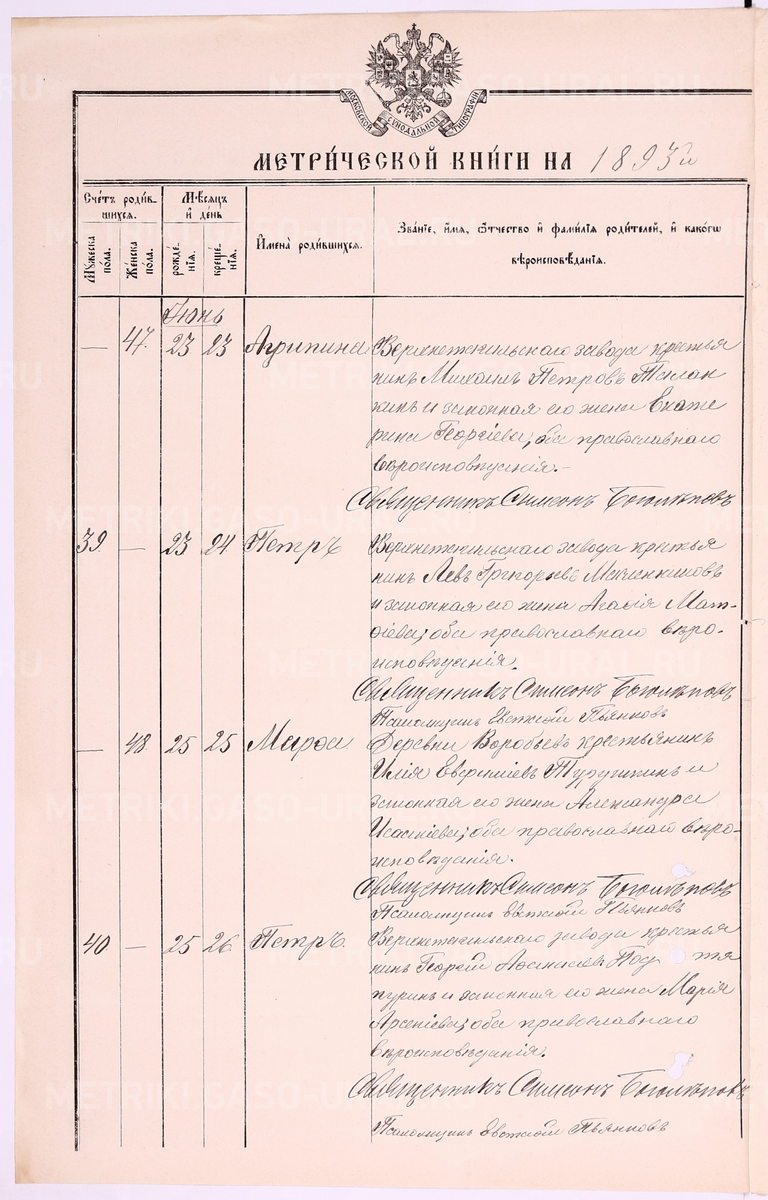 МОСКОВСКОЙ СѴНОДАЛЬНОЙ ТИПОГРАФІИ
МЕТРИ́ЧЕСКОЙ КНИ́ГИ НА 1893й
Счётъ роди́в-
шихся.
Мѣсяцъ
и҆ де́нь
И҆мена̀ роди́вшихся.
Зва́нїе, и҆́мя, ѻ҆́тчество и҆ фами́лїѧ роди́телей, и҆ како́гѡ
вѣроисповѣ́данїѧ.
Мꙋ́жеска
по́ла.
Же́нска
по́ла.
рожде́-
нїѧ.
креще́-
нїѧ.
Іюнь
— 47. 23 23 Агрипина Верхнетагильскаго завода крестья
нинъ Михаилъ Петровъ
и законная его жена Екате
рина Георгіева, оба православнаго
вѣроисповѣданія.-
Священникъ Симеонъ Боголѣповъ
39. — 23 24 Петръ Верхнетагильскаго завода крестья
нинъ Левъ Григорьевъ
и законная его жена Агафія Мат-
ѳіева; оба православнаго вѣро-
исповѣданія.
Священникъ Симеонъ Боголѣповъ
Псаломщикъ Евгеній Пьянковъ
— 48 25 25 Марѳа Деревни Воробьевъ крестьянинъ
Илія Евфиміевъ и
законная его жена Александра
Исакіева; оба православнаго вѣро-
исповѣданія.
Священникъ Симеонъ Боголѣповъ
Псаломщикъ Евгеній Пьянковъ
40 — 25 26 Петръ Верхнетагильскаго завода крестья
нинъ Георгій Аѳанасьевъ
и законная его жена Марія
Арсеніева; оба православнаго
вѣроисповѣданія.
Священникъ Симеонъ Боголѣповъ
Псаломщикъ Евгеній Пьянковъ
METRIKI.GASO-URAL.RU